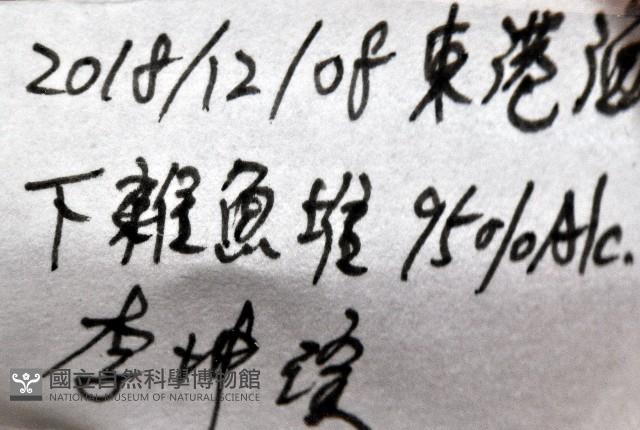 2018/12/08 東港漁
下雜魚堆 95% Alc.
李坤瑄
國立自然科學博物館
NATIONAL MUSEUM OF NATURAL SCIENCE